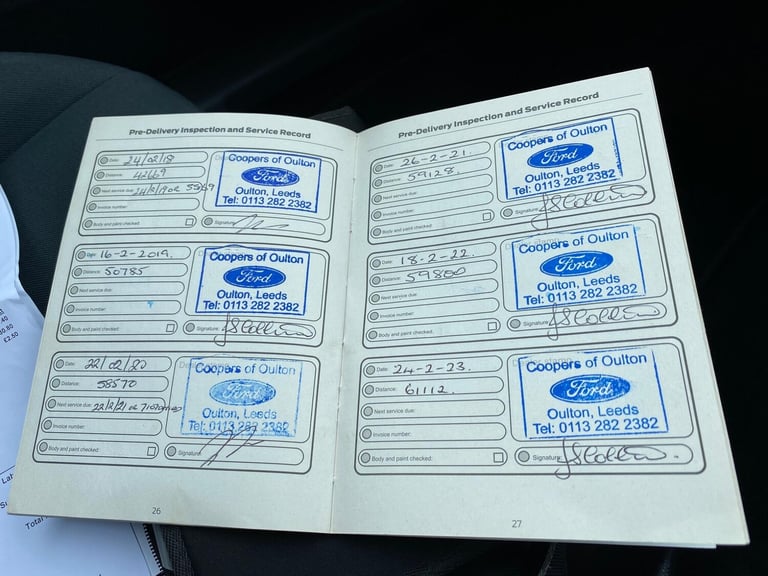 Pre-Delivery Inspection and Service Record
Date: 24/02/18
Distance: 42669
Next service due: 24/2/19 OR 55669
Invoice number:
Body and paint checked:
Coopers of Oulton
Ford
Oulton, Leeds
Tel: 0113 282 2382
Signature:
Date: 16-2-2019.
Distance: 50785
Next service due:
Invoice number:
Body and paint checked:
Coopers of Oulton
Ford
Oulton, Leeds
Tel: 0113 282 2382
Signature:
Date: 22/02/20
Distance: 58570
Next service due: 22/2/21 OR
Invoice number:
Body and paint checked:
Coopers of Oulton
Ford
Oulton, Leeds
Tel: 0113 282 2382
Signature:
26
Pre-Delivery Inspection and Service Record
Date: 26-2-21.
Distance: 59128.
Next service due:
Invoice number:
Body and paint checked:
Coopers of Oulton
Ford
Oulton, Leeds
Tel: 0113 282 2382
Signature:
Date: 18-2-22.
Distance: 59800
Next service due:
Invoice number:
Body and paint checked:
Coopers of Oulton
Ford
Oulton, Leeds
Tel: 0113 282 2382
Signature:
Date: 24-2-23.
Distance: 61112.
Next service due:
Invoice number:
Body and paint checked:
Coopers of Oulton
Ford
Oulton, Leeds
Tel: 0113 282 2382
Signature:
27